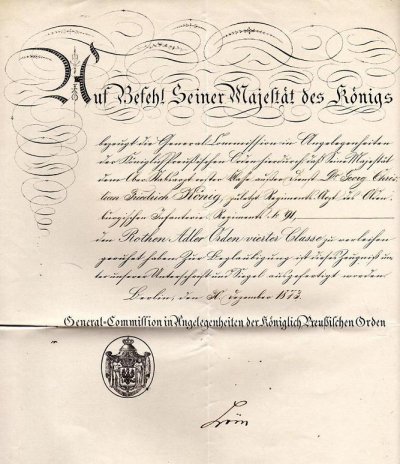 Auf Befehl Seiner Majestät des Königs
bezeugt die General-Commission in Angelegenheiten
der Königlich Preußischen Orden hierdurch daß Seine Majestät
dem Ober-Stabsarzt erster Klasse außer Dienst Dr. Georg Chris-
tian Friedrich König, zuletzt Regiments-Arzt des Olden-
burgischen Infanterie-Regiments № 91,
den Rothen Adler Orden vierter Classe zu verleihen
geruhet haben. Zur Beglaubigung ist dieses Zeugniß un-
ter unserer Unterschrift und Siegel ausgefertigt worden.
Berlin, den Dezember 1873.
General-Commission in Angelegenheiten der Königlich Preußischen Orden